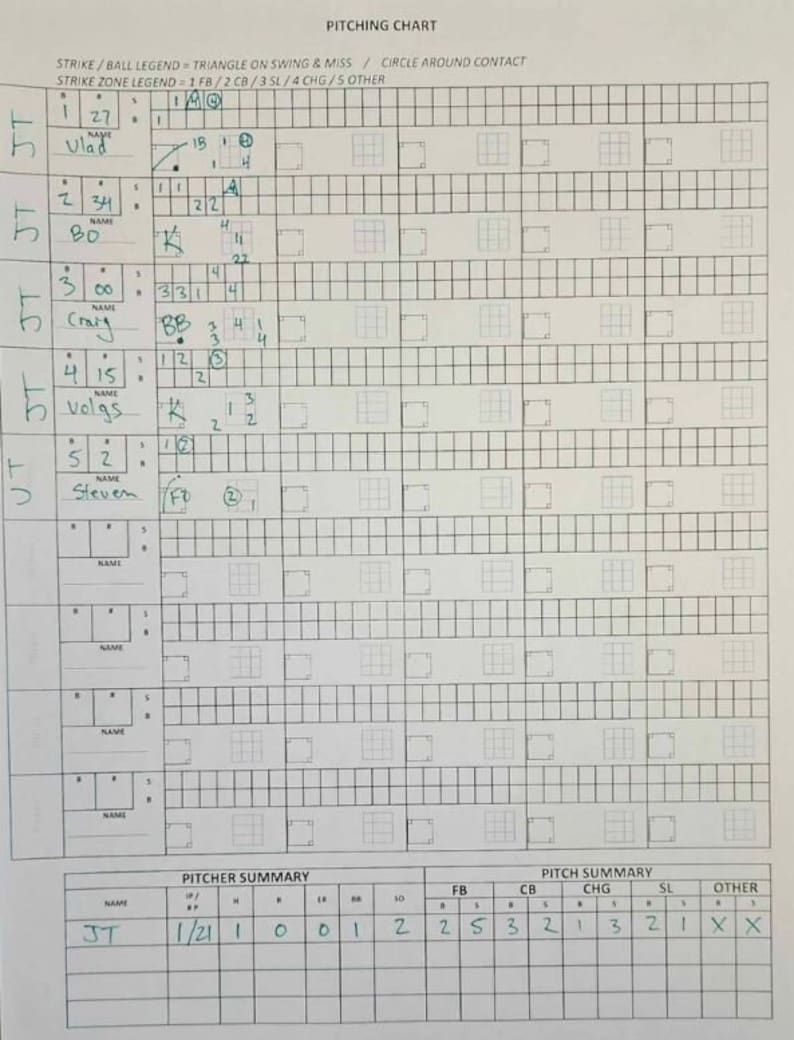 PITCHING CHART
STRIKE / BALL LEGEND = TRIANGLE ON SWING & MISS / CIRCLE AROUND CONTACT
STRIKE ZONE LEGEND = 1 FB / 2 CB / 3 SL / 4 CHG / 5 OTHER
B # S 1 4 4
JT 1 27 B 1
NAME
Vlad 1B 1 4
1 4
B # S 1 1 4
JT 2 34 B 2 2
NAME 4
BO K 11
22
# S 4
JT 3 00 B 3 3 1 4
NAME
Craig BB 3 4 1
3 4
B # S 1 2 3
JT 4 15 B 2
NAME 3
Volgs K 1
2 2
B # S 1 2
JT 5 2 B
NAME
Steven F7 2 1
B # S
B
NAME
B # S
B
NAME
B # S
B
NAME
B # S
B
NAME
PITCHER SUMMARY PITCH SUMMARY
NAME IP / # P H R ER BB SO FB CB CHG SL OTHER
B S B S B S B S B S
JT 1/21 1 0 0 1 2 2 5 3 2 1 3 2 1 X X